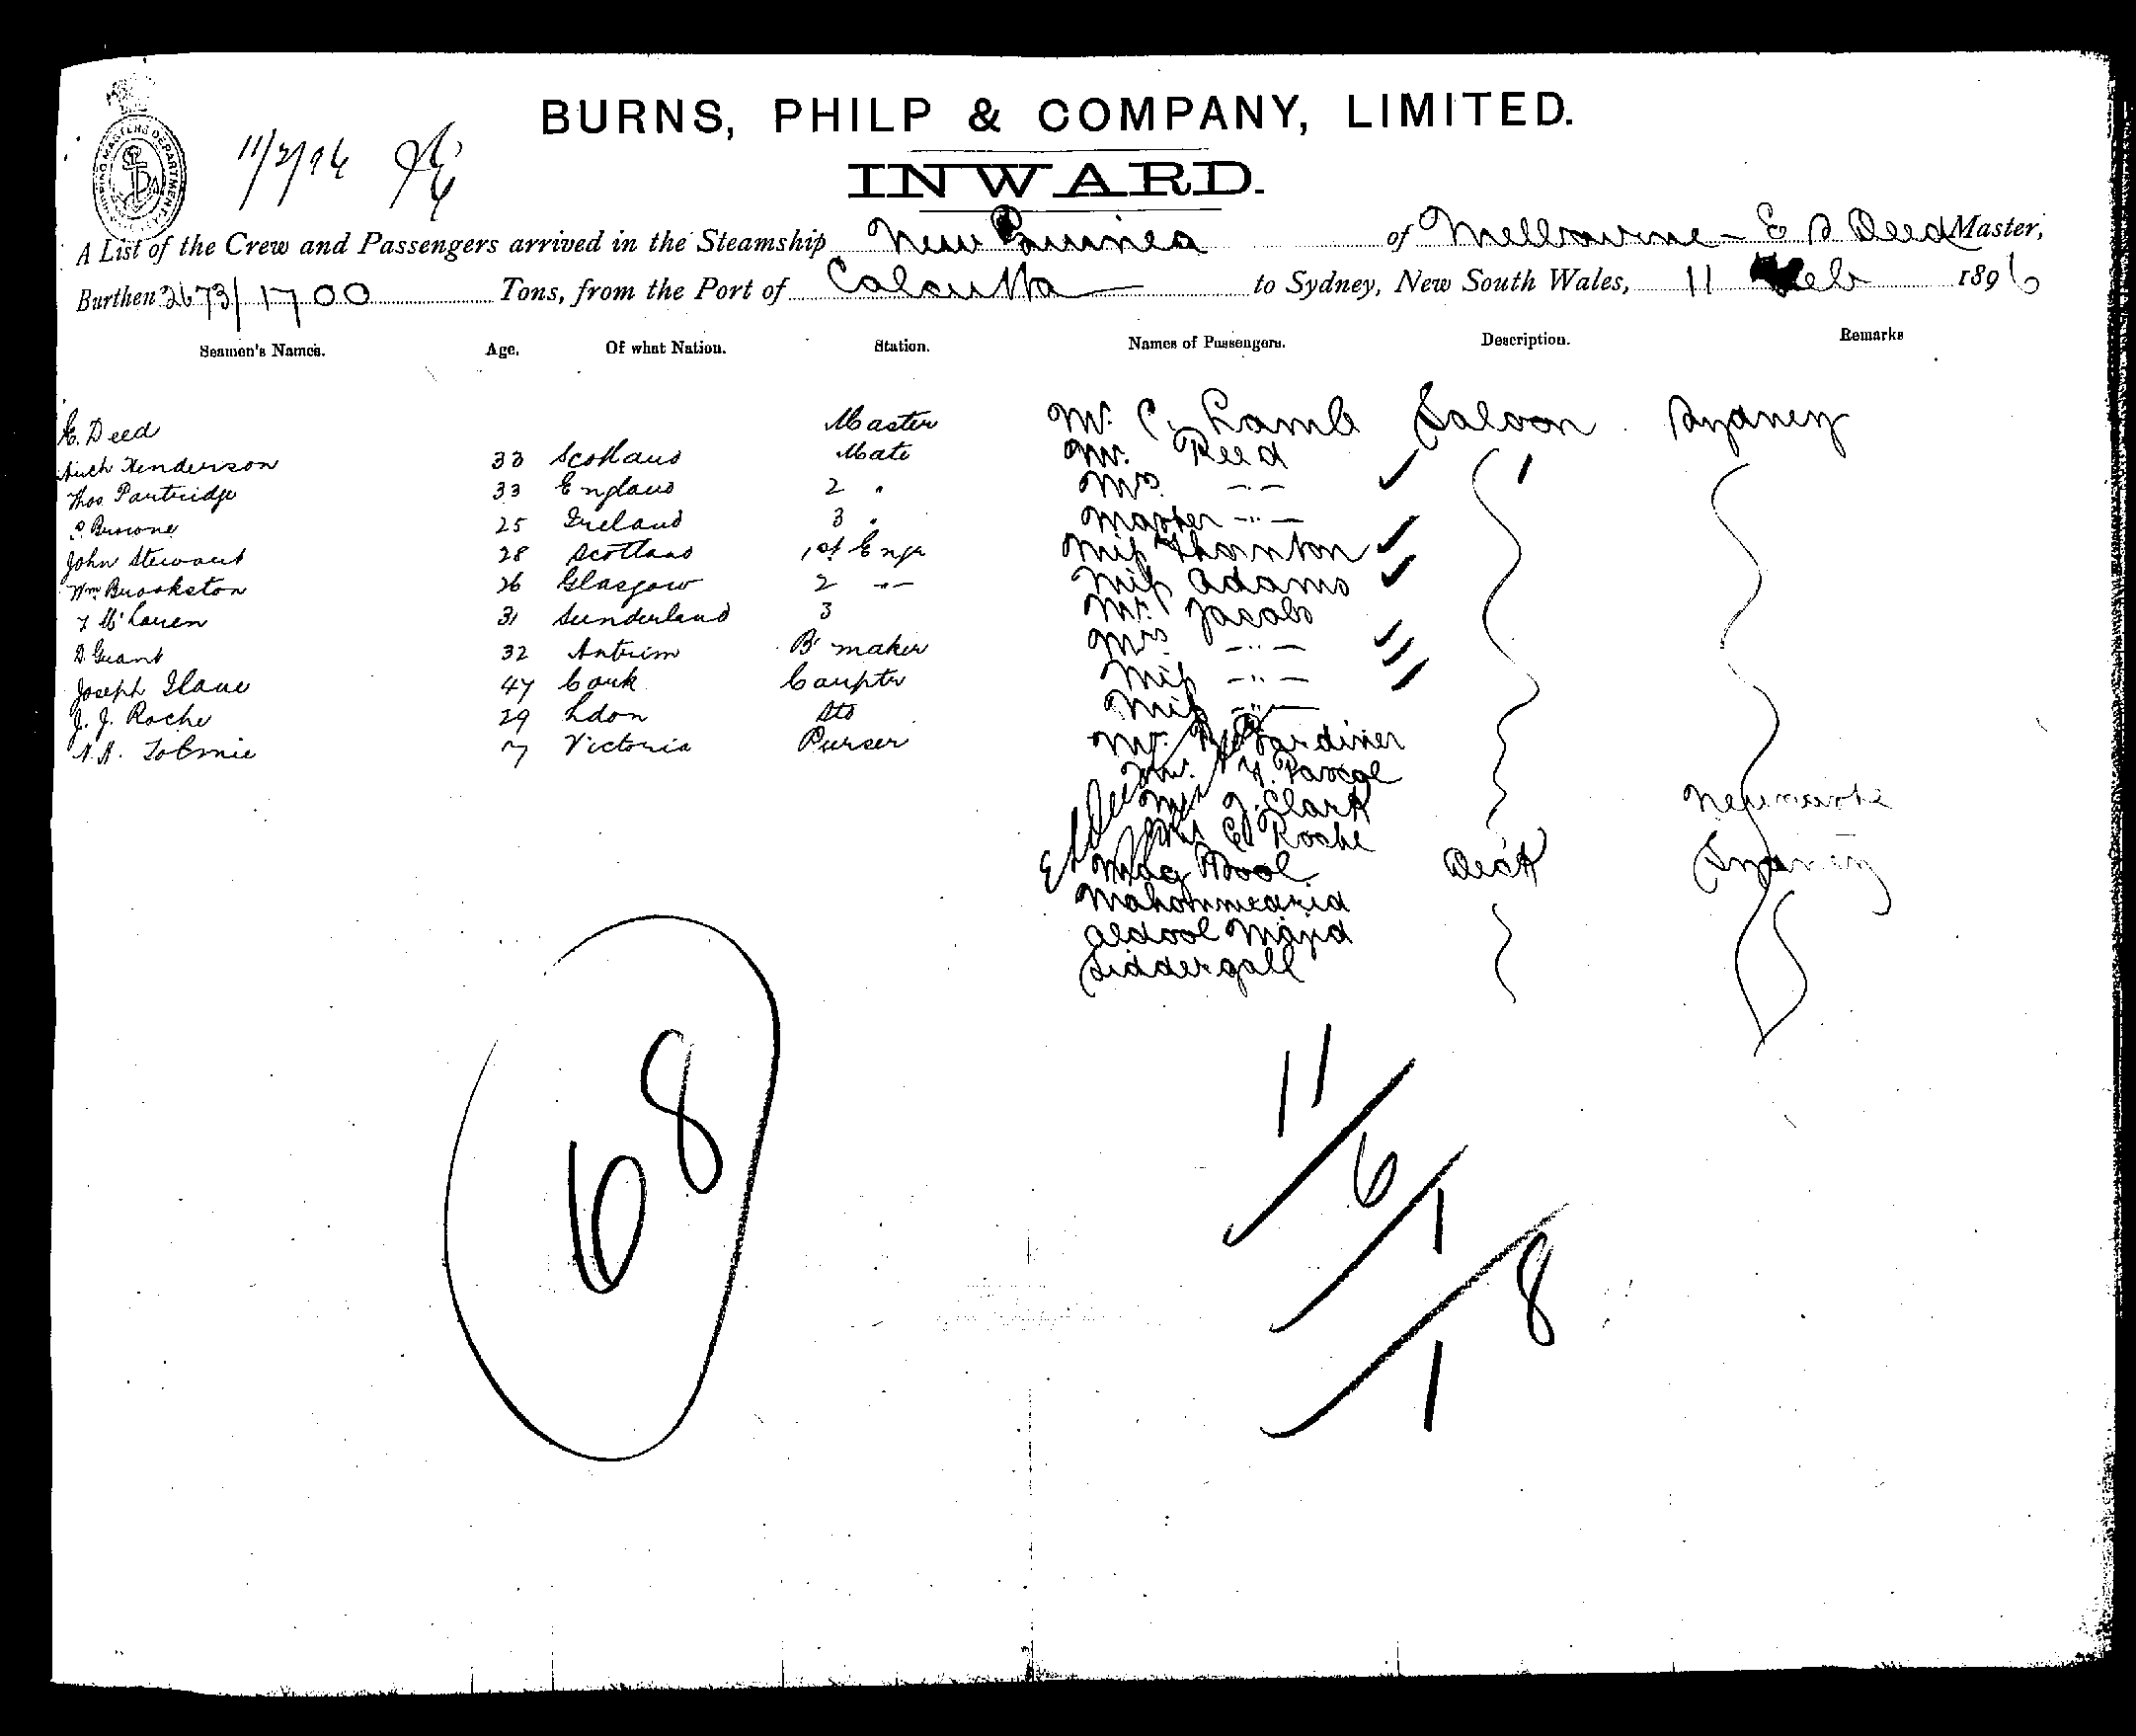 BURNS, PHILP & COMPANY, LIMITED.
INWARD.
11/2/96
A List of the Crew and Passengers arrived in the Steamship New Guinea of Melbourne - E S Deed Master,
Burthen 2673/1700 Tons, from the Port of Calcutta to Sydney, New South Wales, 11 Feb 1896
Seamen's Names. Age. Of what Nation. Station. Names of Passengers. Description. Remarks
E. Deed Master Mr. C. Lamb Saloon Sydney
Henderson 33 Scotland Mate Mr. Reed
Thos Partridge 33 England 2 " Mrs. -"-
25 Ireland 3 " Master -"-
John Stewart 28 Scotland 1st Engr Miss Thornton
Wm Brookston 26 Glasgow 2 -"- Miss Adams
McLaren 31 Sunderland 3 Mr. Jacobs
D. Grant 32 Antrim B maker Mrs -"-
Joseph 47 Cork Carpter Miss -"-
J. J. Roche 29 Ldon Sto Miss -"-
Victoria Purser Mr. Gardiner
Pascoe
Clark
Roche
Deck Sydney
68
11
6
1
8
1